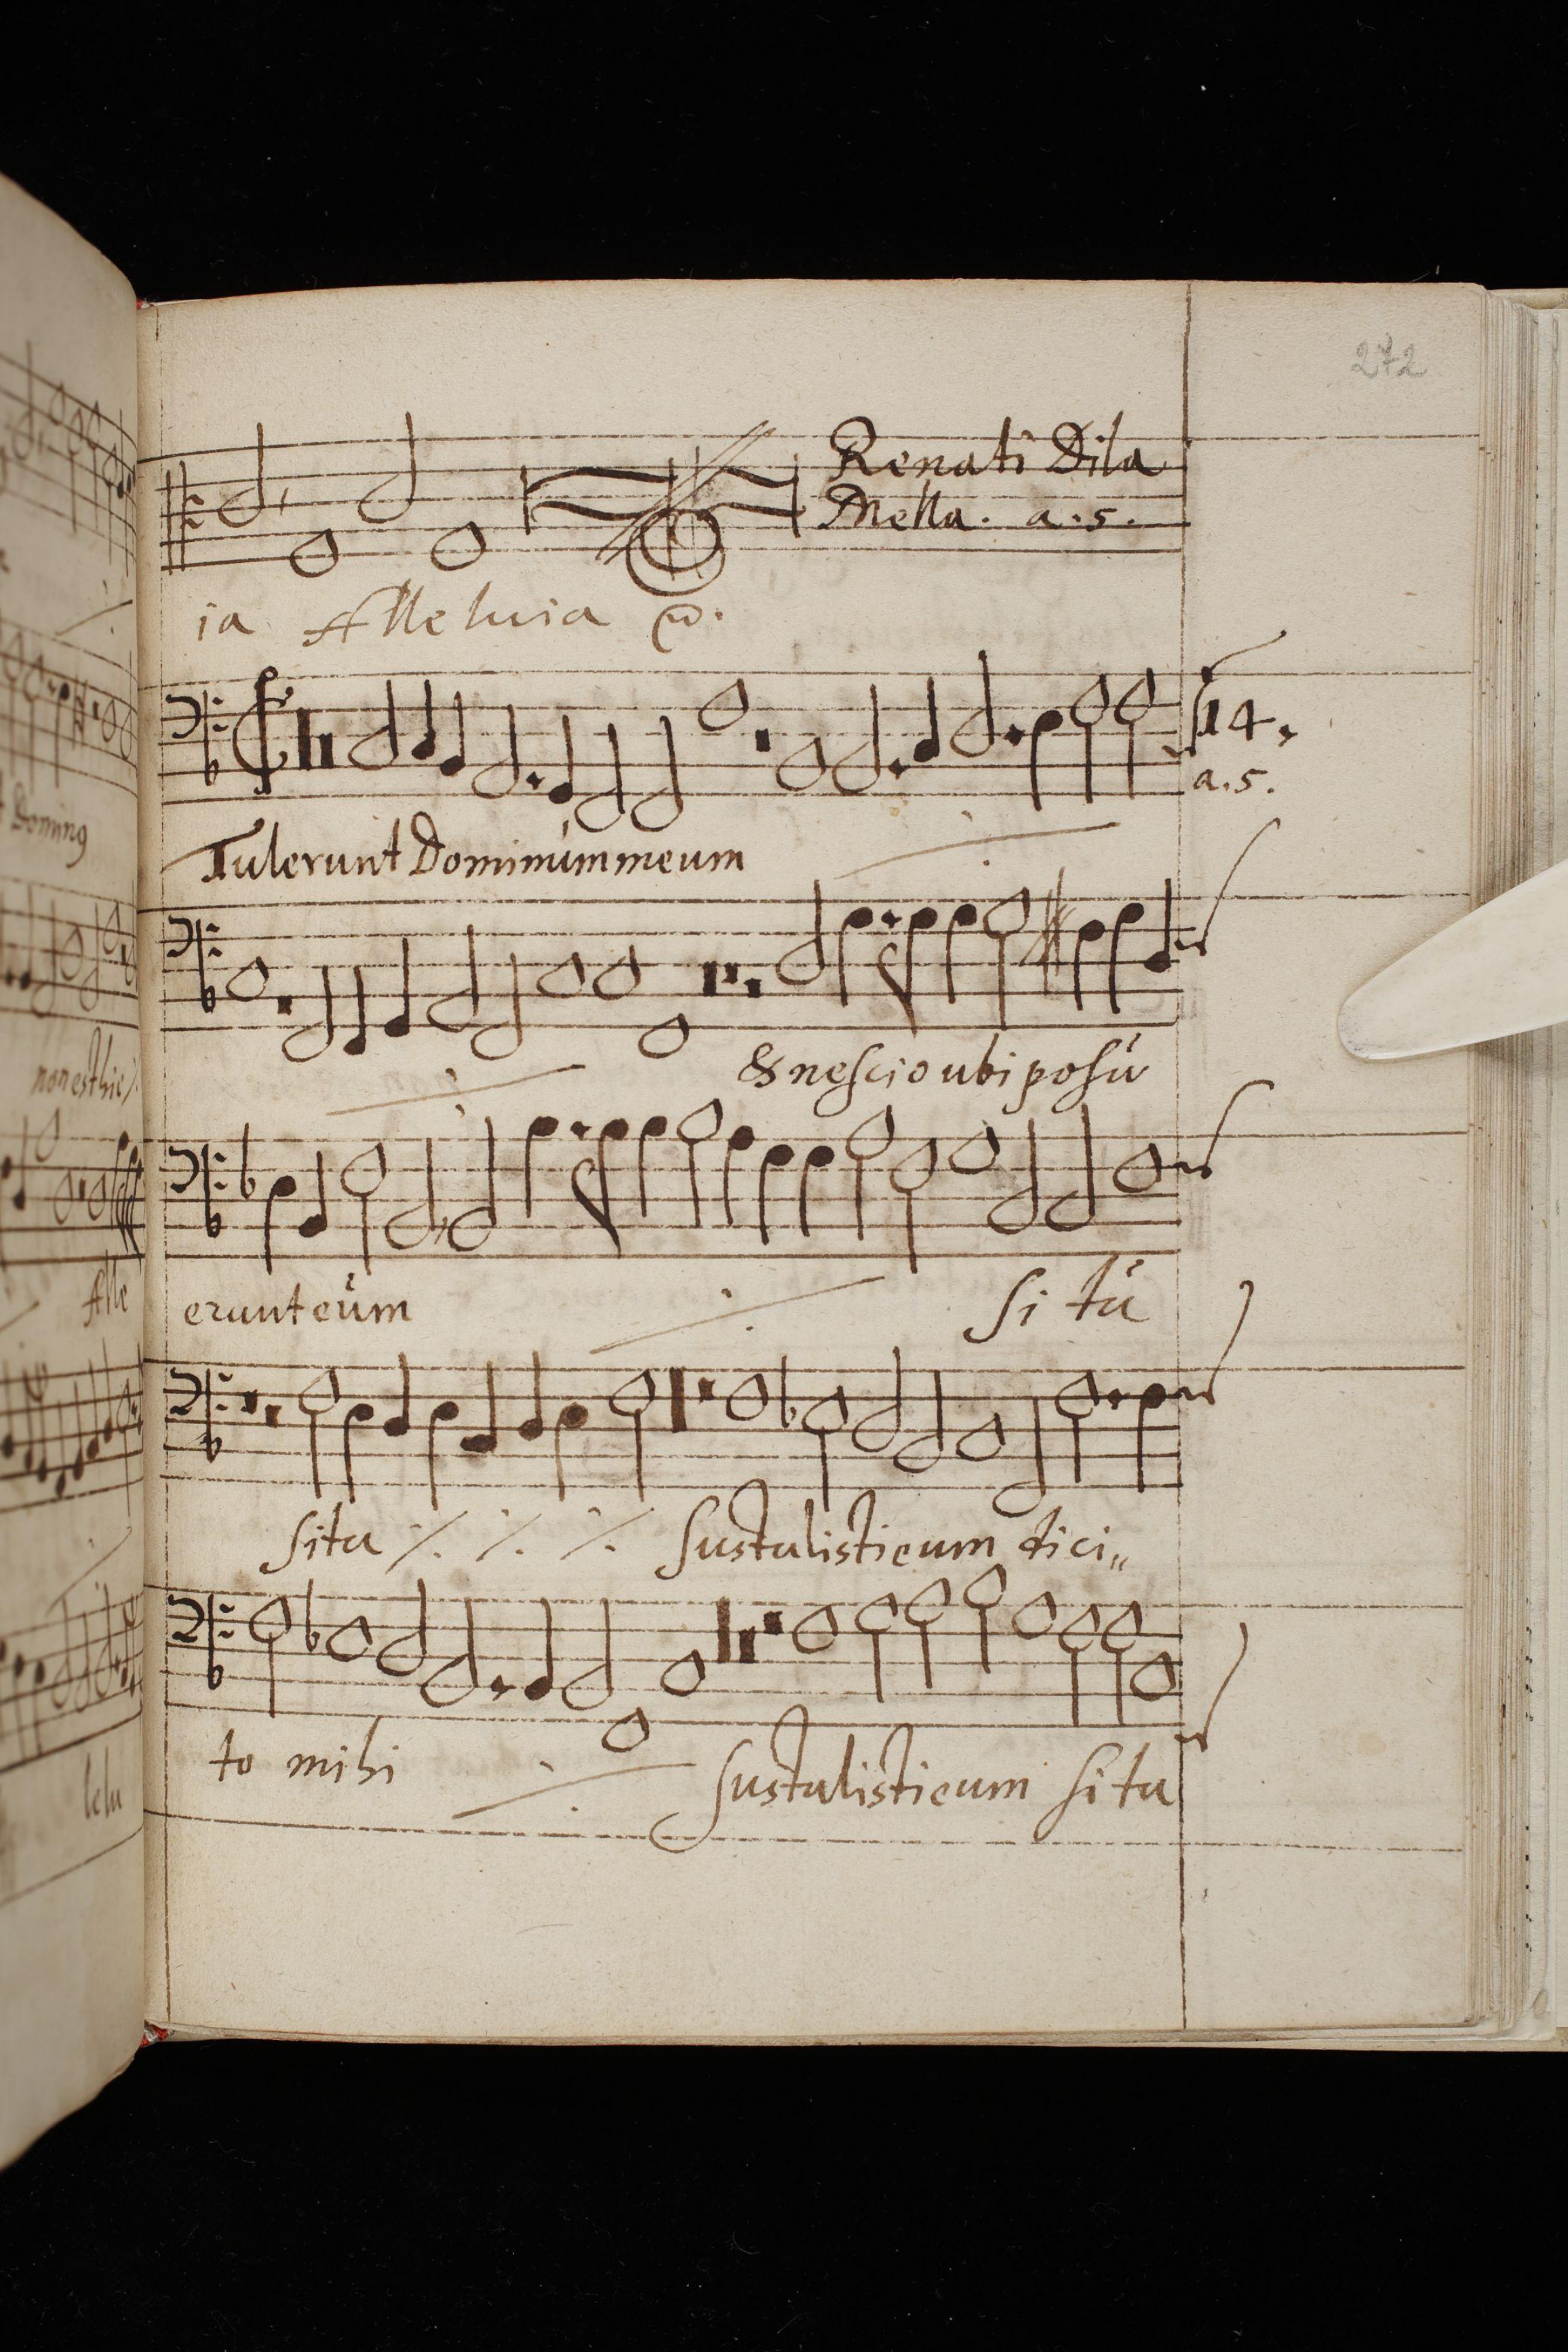 272
Renati Dila
Mella. a.5.
ia Alleluia
14.
a.5.
Tulerunt Dominúm meum
& nescio ubi posú
erunt eúm si tú
sita sustulisti eum dici„
to mihi sustulisti eum si tu
Doming
non est hic
Alle
lelu